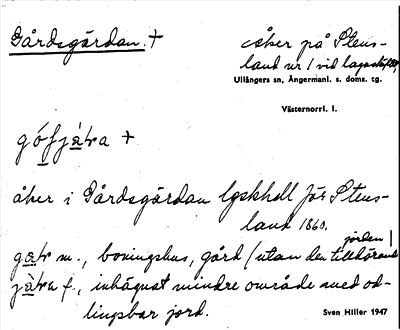 Gårdsgärdan. +
åker på Stens-
land nr 1 vid lagaskifte,
Ullångers sn, Ångermanl. s. doms. tg.
Västernorrl. l.
åker i Gårdsgärdan lgskhdl för Stens-
land 1860.
m., boningshus, gård (utan den tillhörande
jorden)
f., inhägnat mindre område med od-
lingsbar jord.
Sven Hiller 1947